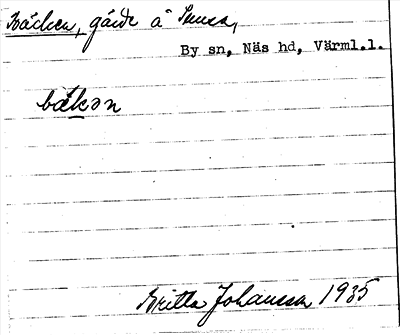 Bäcken, gärde å Smura,
By sn, Näs hd, Värml.l.
bäkən
Britta Johansson 1935